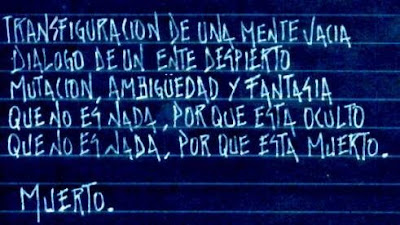 TRANSFIGURACION DE UNA MENTE VACIA
DIALOGO DE UN ENTE DESPIERTO
MUTACION, AMBIGÜEDAD Y FANTASIA
QUE NO ES NADA, POR QUE ESTA OCULTO
QUE NO ES NADA, POR QUE ESTA MUERTO.
MUERTO.